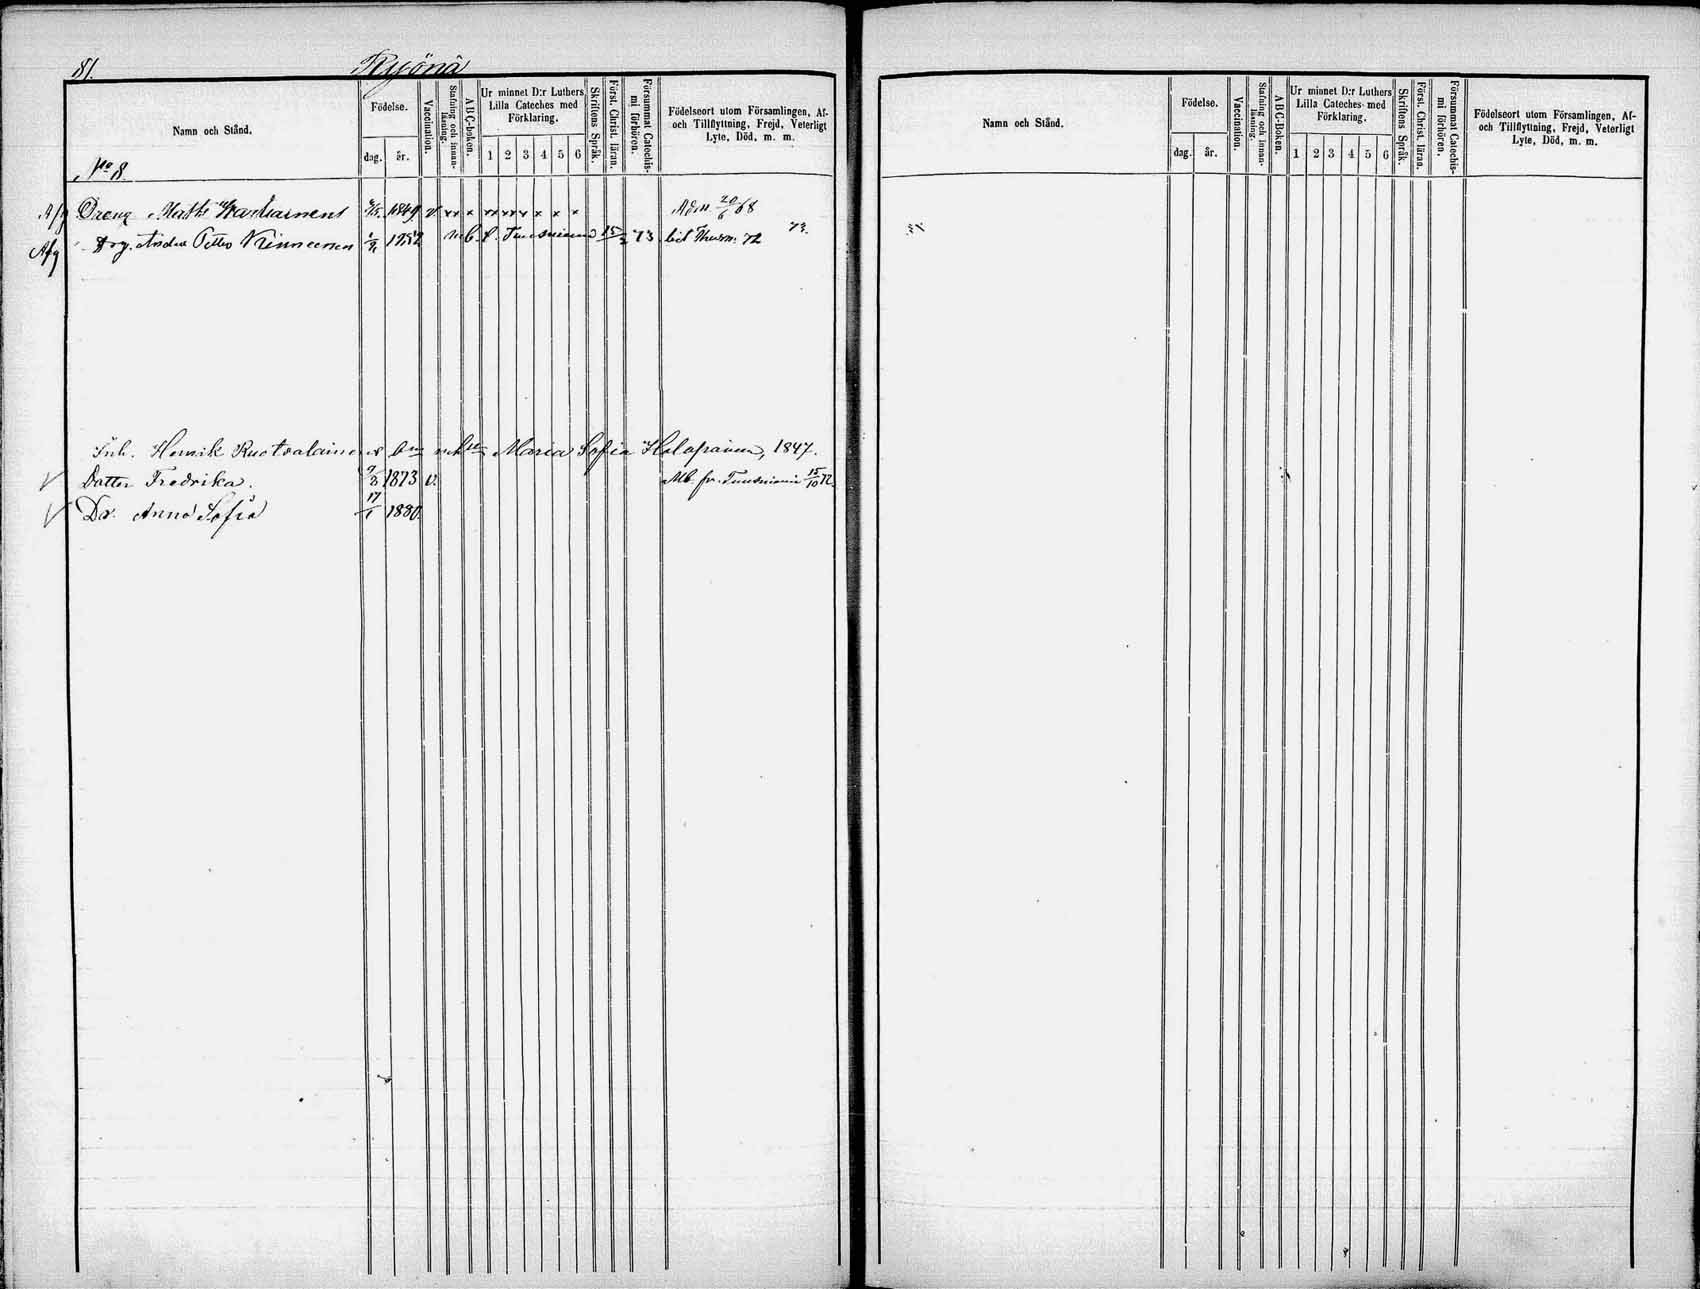 81.
Ryönä
Namn och Stånd.
Födelse.
dag.
år.
Vaccination.
Stafning och innanläsning.
ABC-boken.
Ur minnet D:r Luthers Lilla Cateches med Förklaring.
1 2 3 4 5 6
Skriftens Språk.
Först. Christ. läran.
Försummat Catechismi förhören.
Födelseort utom Församlingen, Af- och Tillflyttning, Frejd, Veterligt Lyte, Död, m. m.
No 8.
Afg Dreng Matts 1849. v x x x x x x 20/6 68
Afg Drg. Petter Kinnunen 1852 Tuusniemi 15/2 73. 72 73.
Inh. Henrik Ruotsalainen Maria Sofia Holopainen, 1847.
Dotter Fredrika. 7/3 1873 v. Mb. fr. Tuusniemi 15/10 72.
Do. Anna Sofia 17/1 1880.
Namn och Stånd.
Födelse.
dag.
år.
Vaccination.
Stafning och innanläsning.
ABC-Boken.
Ur minnet D:r Luthers Lilla Cateches med Förklaring.
1 2 3 4 5 6
Skriftens Språk.
Först. Christ. läran.
Försummat Catechismi förhören.
Födelseort utom Församlingen, Af- och Tillflyttning, Frejd, Veterligt Lyte, Död, m. m.